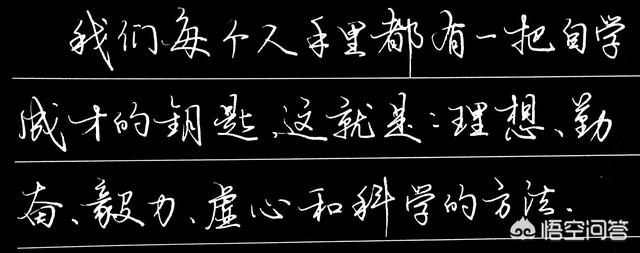 我们每个人手里都有一把自学
成才的钥匙,这就是:理想、勤
奋、毅力、虚心和科学的方法.
悟空问答